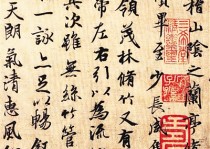 稽山陰之蘭亭
賢畢至少長咸
領茂林脩竹又有
帶左右引以為流
其次雖無絲竹管
一詠亦足以暢敘
天朗氣清惠風和